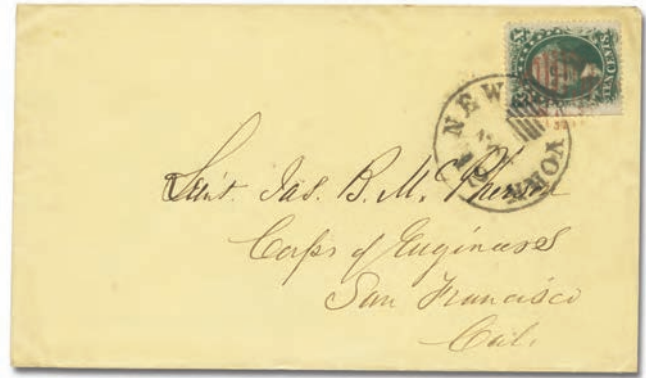 TEN CENTS
NEW YORK
Leiut. Jas. B. M. Pherson
Corps of Engineers
San Francisco
Cal.